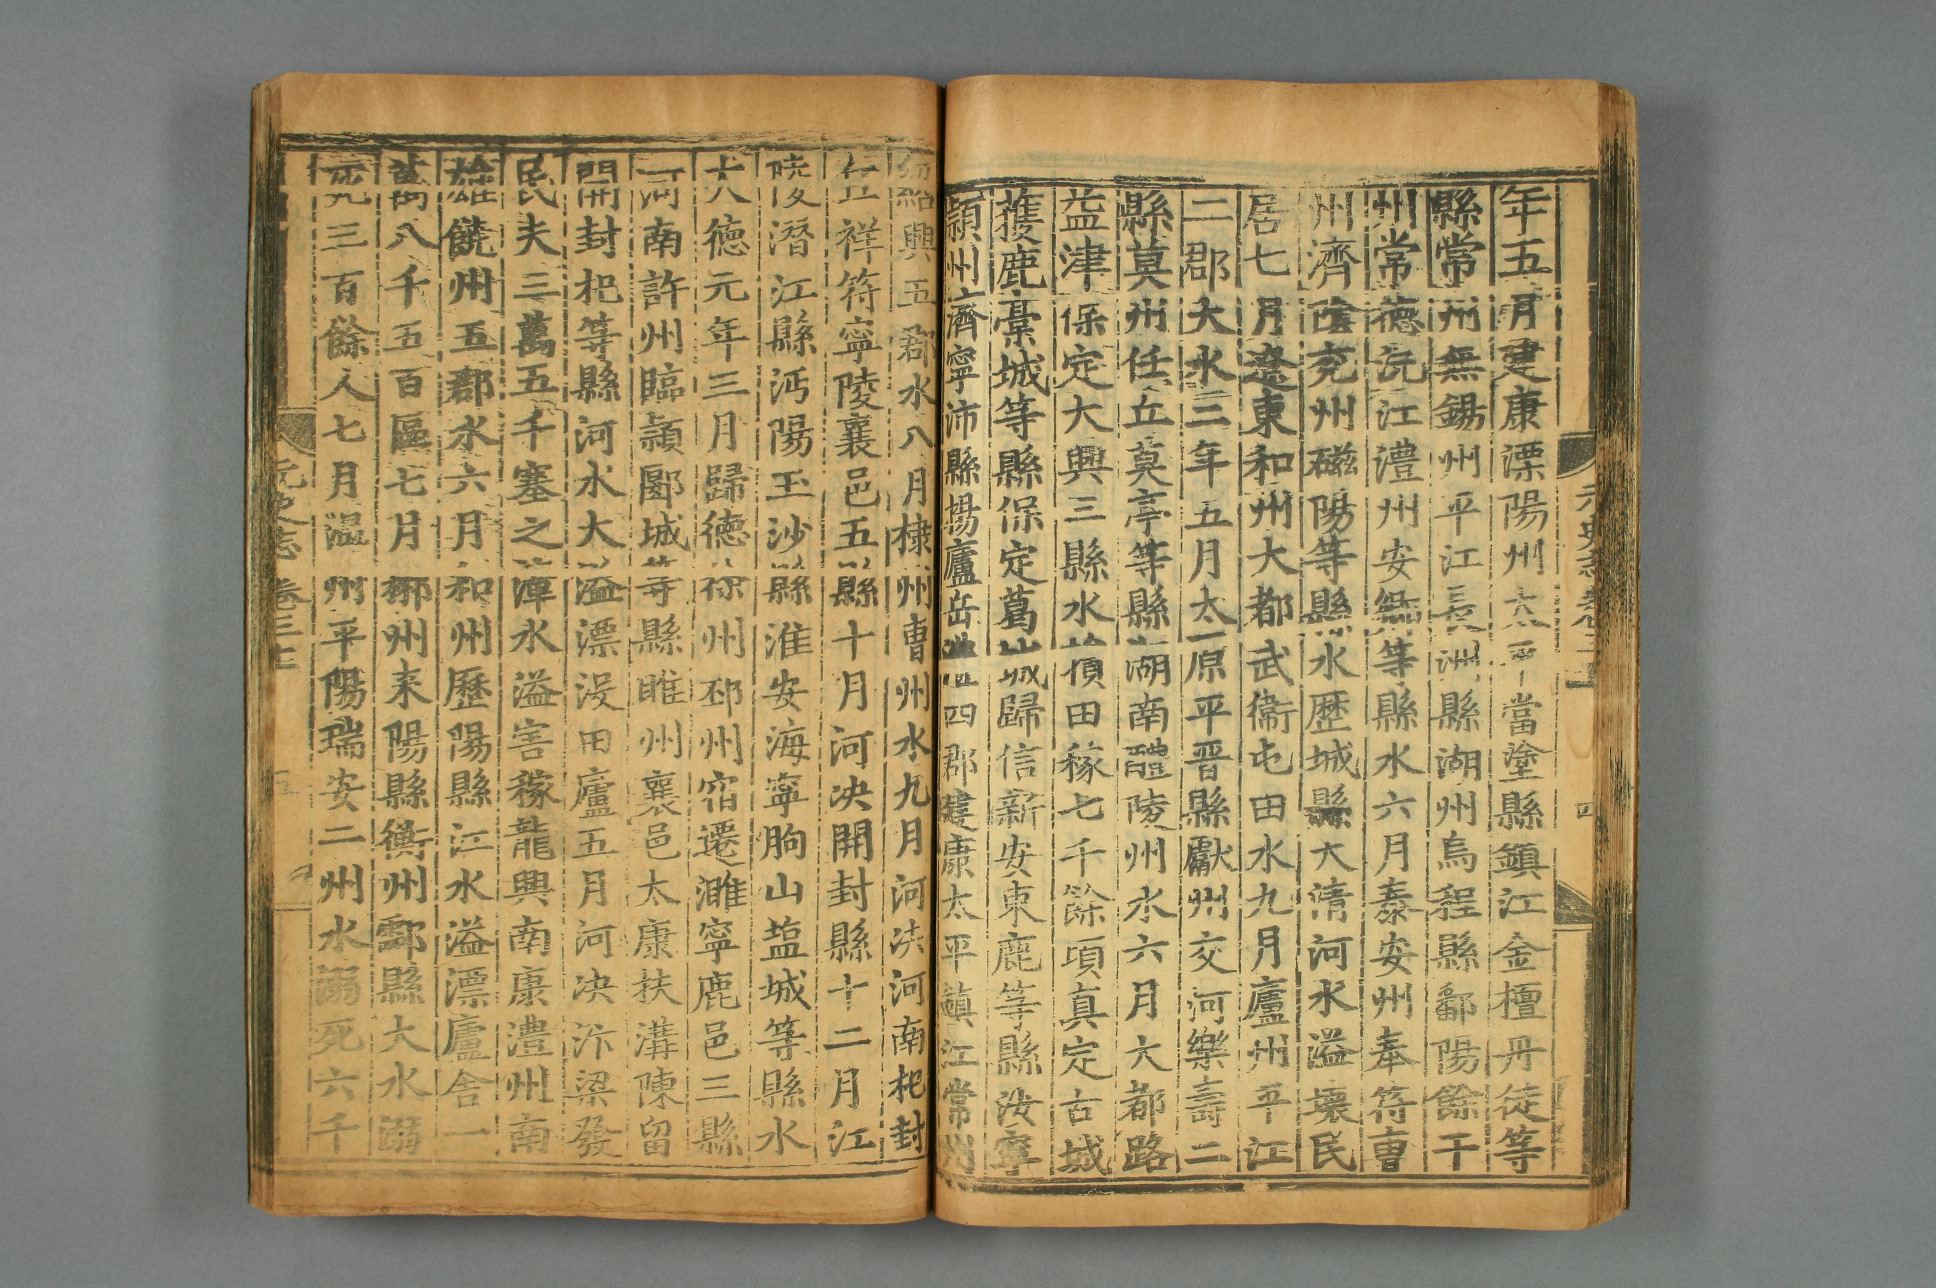 年五月建康溧陽州太平當塗縣鎮江金檀丹徒等
縣常州無錫州平江長洲縣湖州烏程縣鄱陽餘干
州常德沅江澧州安鄉等縣水六月泰安州奉符曹
州濟陰兗州磁陽等縣水歷城縣大清河水溢壞民
居七月遼東和州大都武衞屯田水九月廬州平江
二郡大水三年五月太原平晉縣獻州交河樂壽二
縣莫州任丘莫亭等縣湖南醴陵州水六月大都路
益津保定大興三縣水損田稼七千餘頃真定古城
獲鹿藁城等縣保定葛城歸信新安束鹿等縣汝寧
潁州濟寧沛縣揚廬岳澧四郡建康太平鎮江常州
紹興五郡水八月棣州曹州水九月河决河南杞封
丘祥符寧陵襄邑五縣十月河决開封縣十二月江
陵潛江縣沔陽玉沙縣淮安海寧朐山塩城等縣水
大德元年三月歸德徐州邳州宿遷濉寧鹿邑三縣
河南許州臨潁郾城等縣睢州襄邑太康扶溝陳留
開封杞等縣河水大溢漂没田廬五月河决汴梁發
民夫三萬五千塞之漳水溢害稼龍興南康澧州南
雄饒州五郡水六月和州歷陽縣江水溢漂廬舎一
萬八千五百區七月郴州耒陽縣衡州酃縣大水溺
死三百餘人七月溫州平陽瑞安二州水溺死六千
元史志 卷三七
五